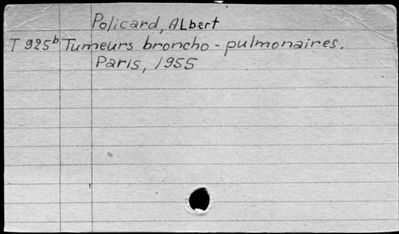 Policard, Albert
T 925b Tumeurs broncho-pulmonaires.
Paris, 1955